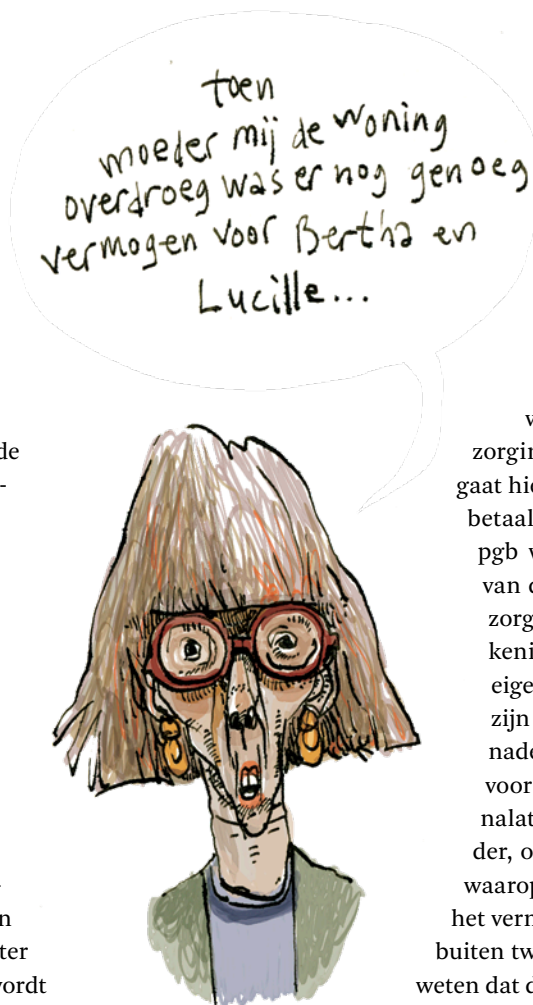 toen
moeder mij de woning
overdroeg was er nog genoeg
vermogen voor Bertha en
Lucille...
de
-
zorgin
gaat hie
betaal
pgb w
van d
zorg
keni
eige
zijn
nade
voor
nalat
der, o
waarop
het vern
buiten tw
weten dat d
n
ter
vordt